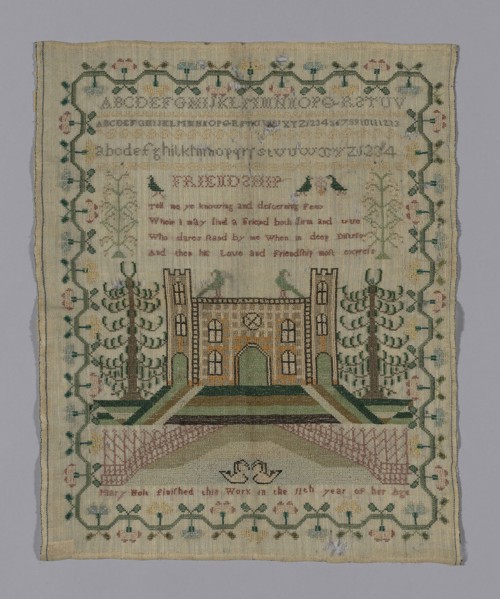 ABCDEFGHIJKLMNOPQRSTUV
ABCDEFGHIJKLMNOPQRSTUVWXYZ1234567891011213
abcdefghiklmnopqrstuvwxyz1234
FRIENDSHIP
Tell me ye knowing and discerning Few
Where I may find a Friend both firm and
Who dares stand by me When in deep
And then his Love and Friendship most express
Mary finished this Work in the 11th year of her Age